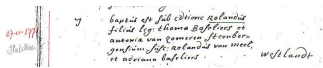 baptis est sub cditione Rolandus
filius leg: thoma Bastiers et
antonia van Zomeren steenber-
gensium susc: Rolandus van meel,
et adriana bastiers westlandt